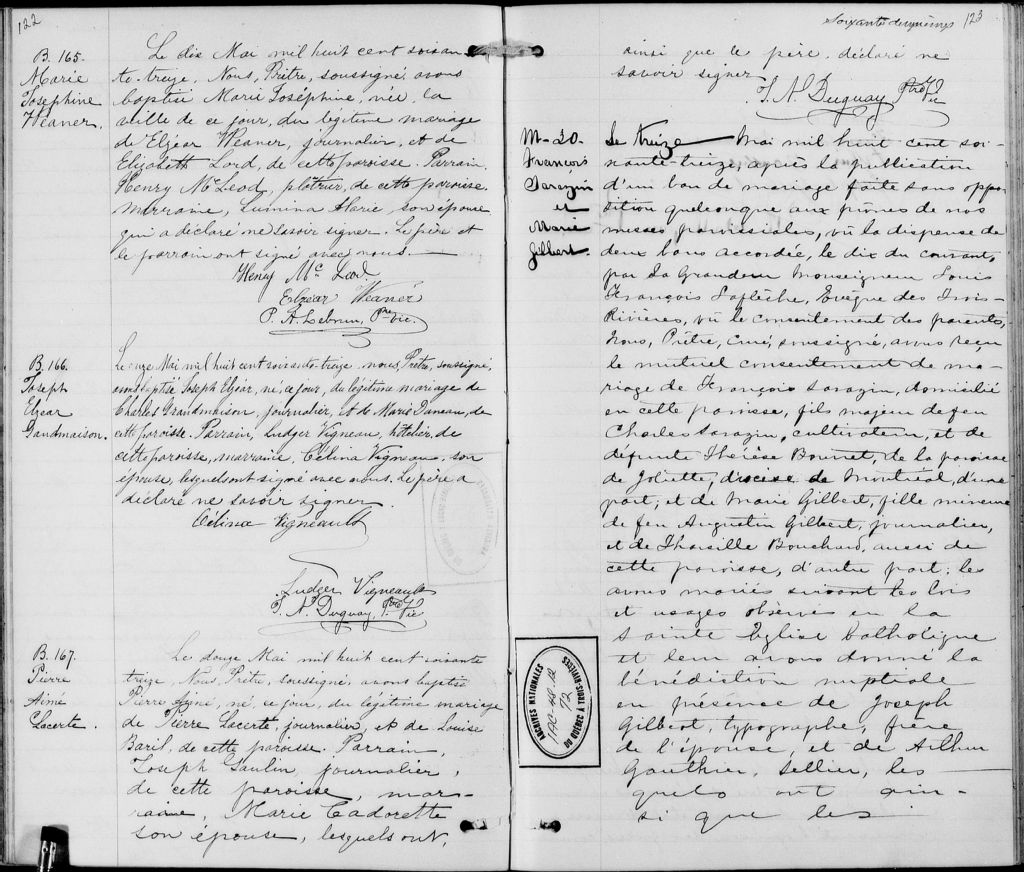 122
B. 165.
Marie
Joséphine
Weaner.
Le dix Mai mil huit cent soixan-
te-treize, Nous, Prêtre, soussigné, avons
baptisé Marie Joséphine, née, la
veille de ce jour, du légitime mariage
de Elzéar Weaner, journalier, et de
Elizabeth Lord, de cette paroisse. Parrain,
Henry McLeod, plâtrier, de cette paroisse,
marraine, Lumina Marie, son épouse
qui a déclaré ne savoir signer. Le père et
le parrain ont signé avec nous.
Henry Mc Leod
Elzear Weaner
P. A. Lebrun, Ptre Vic.
B. 166.
Joseph
Elzear
Grandmaison.
Le onze Mai mil huit cent soixante-treize, nous, Prêtre, soussigné,
avons baptisé Joseph Elzéar, né, ce jour, du légitime mariage de
Charles Grandmaison, journalier, et de Marie Juneau, de
cette paroisse. Parrain, Ludger Vigneau, hôtelier, de
cette paroisse, marraine, Célina Vigneau, son
épouse, lesquels ont signé avec nous. Le père a
déclaré ne savoir signer.
Célina Vigneault
Ludger Vigneault
J. N. Duguay, Ptre Vic
B. 167.
Pierre
Aimé
Lacerte.
Le douze Mai mil huit cent soixante
treize, Nous, Prêtre, soussigné, avons baptisé
Pierre Aimé, né, ce jour, du légitime mariage
de Pierre Lacerte, journalier, et de Louise
Baril, de cette paroisse. Parrain,
Joseph Gaulin, journalier,
de cette paroisse, mar-
raine, Marie Cadorette
son épouse, lesquels ont,
123
ainsi que le père, déclaré ne
savoir signer
J. N. Duguay Ptre Vic
M-30.
François
Sarazin
et
Marie
Gilbert.
Le treize Mai mil huit cent soi-
xante-treize, après la publication
d'un ban de mariage faite sans oppo-
sition quelconque aux prônes de nos
messes paroissiales, vû la dispense de
deux bans accordée, le dix du courant,
par Sa Grandeur Monseigneur Louis
François Laflèche, Evêque des Trois-
Rivières, vû le consentement des parents,
Nous, Prêtre, curé, soussigné, avons reçu
le mutuel consentement de ma-
riage de François Sarazin, domicilié
en cette paroisse, fils majeur de feu
Charles Sarazin, cultivateur, et de
défunte Thérèse Bonnet, de la paroisse
de Joliette, diocèse de Montréal, d'une
part; et de Marie Gilbert, fille mineure
de feu Augustin Gilbert, journalier,
et de Tharsille Bouchard, aussi de
cette paroisse, d'autre part; les
avons mariés suivant les lois
et usages observés en la
Sainte Eglise Catholique
et leur avons donné la
bénédiction nuptiale
en présence de Joseph
Gilbert, typographe, frère
de l'épouse, et de Arthur
Gauthier, sellier, les-
quels ont ain-
si que les
ARCHIVES NATIONALES
DU QUÉBEC À TROIS-RIVIÈRES